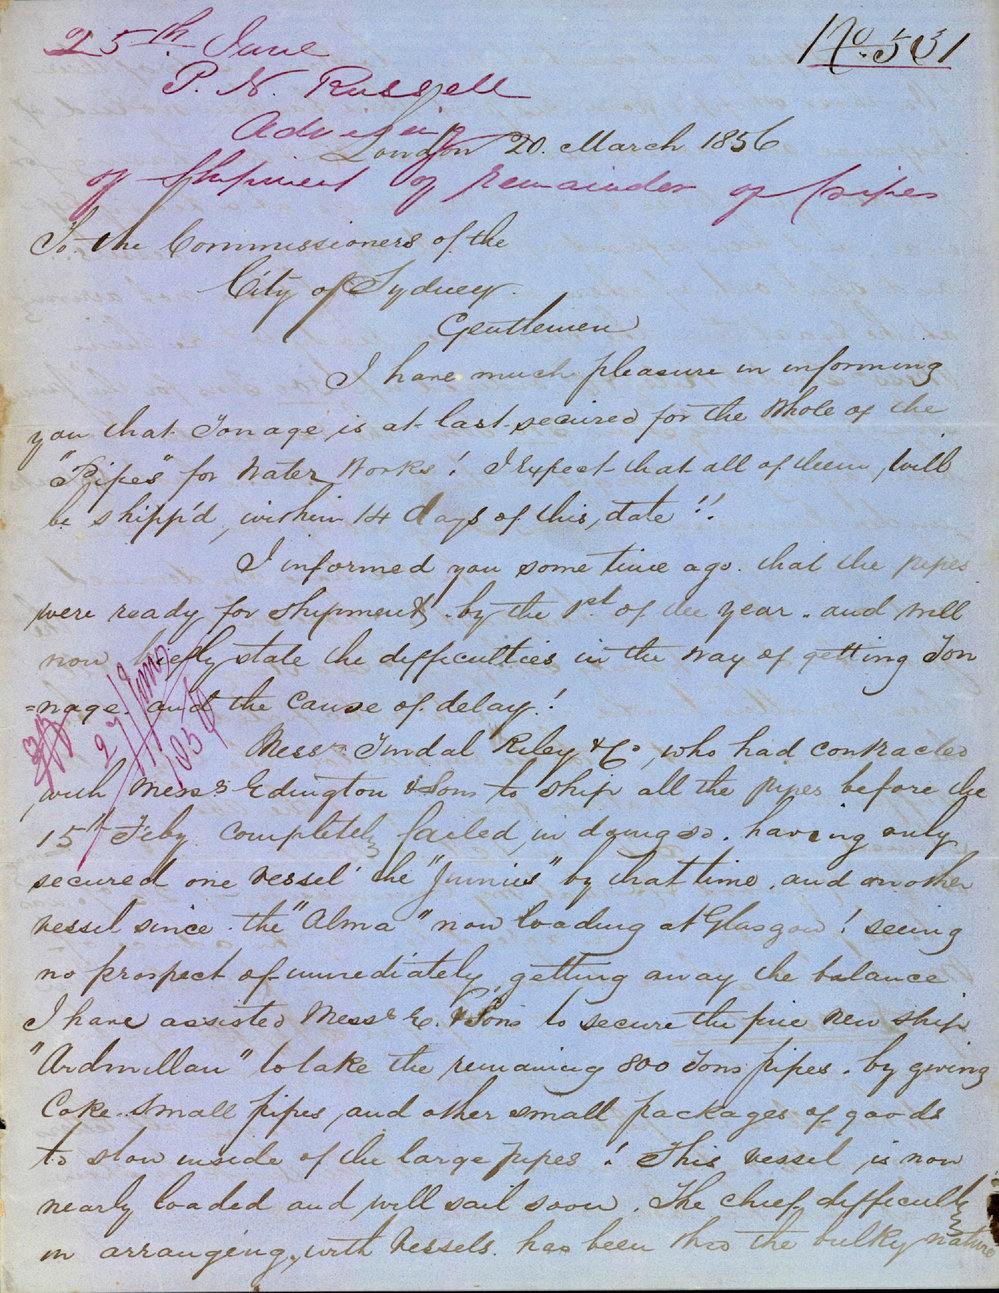 25th June
No. 531
P. N. Russell
Advising
London 20. March 1856
of Shipment of remainder of pipes
To the Commissioners of the
City of Sydney.
Gentlemen
I have much pleasure in informing
you that Tonage is at last secured for the Whole of the
"Pipes" for Water Works! I expect that all of them, will
be shipp'd, within 14 days of this, date!!
I informed you some time ago. that the pipes
were ready for shipment, by the 1st of the year. and will
now briefly state the difficulties in the way of getting Ton
=nage. and the Cause of delay!
27 June
1856
Messrs Tindal Riley & Co, who had contracted
with Messrs Edington & Sons to ship all the pipes before the
15th Feby completely failed, in doing so. having only
secured one vessel the "Junius" by that time, and another
vessel since. the "Alma" now loading at Glasgow! seeing
no prospect of immediately, getting away the balance
I have assisted Messrs E. & Sons to secure the fine new ship
"Ardmillan" to take the remaining 800 Tons pipes. by giving
Coke. Small pipes, and other small packages of goods
to stow inside of the large pipes! This vessel is now
nearly loaded and will sail soon. The chief difficulty
in arranging, with Vessels. has been the bulky nature